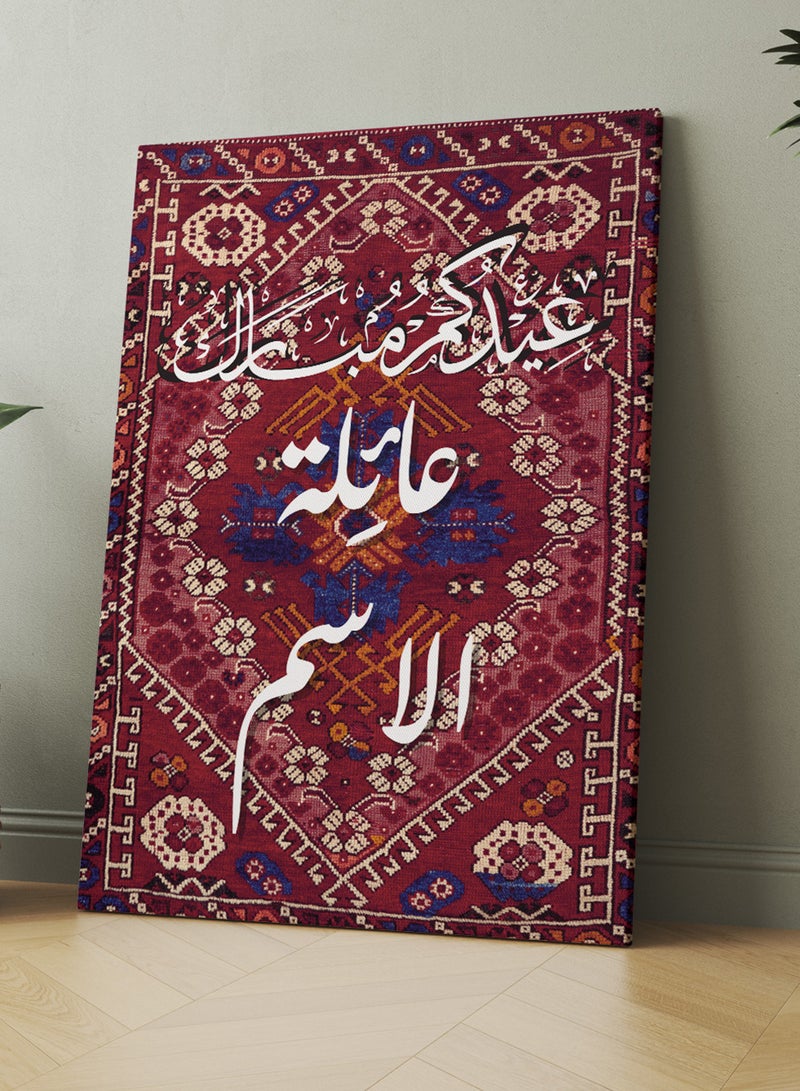 عِيدُكُم مُبَارَك
عائِلة
الاسم